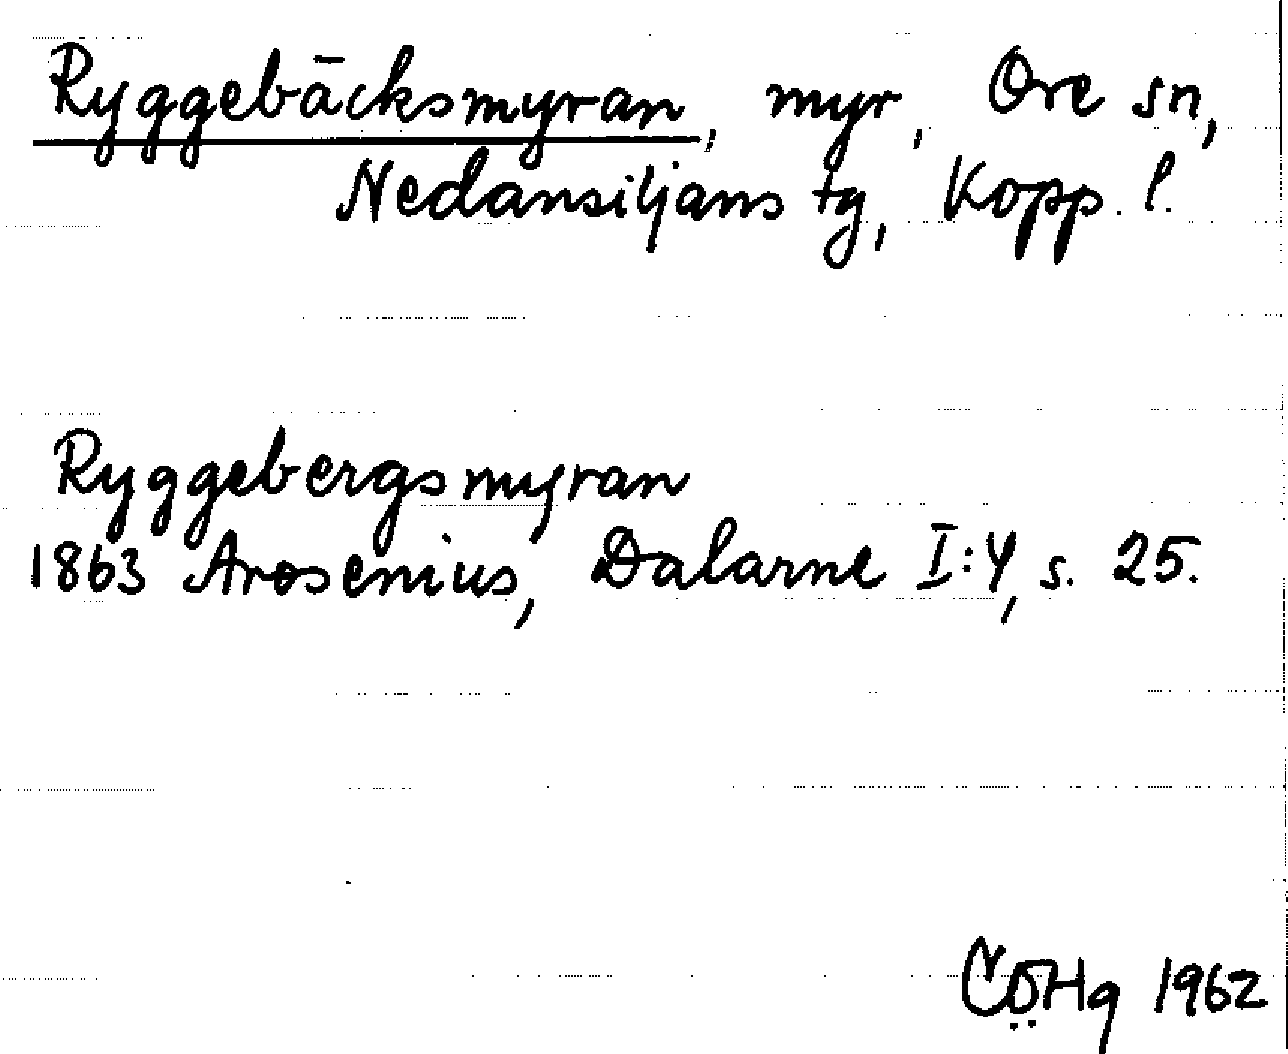 Ryggebäcksmyran, myr, Ore sn,
Nedansiljans tg, Kopp. l.
Ryggebergsmyran
1863 Arosenius, Dalarne I:4, s. 25.
1962